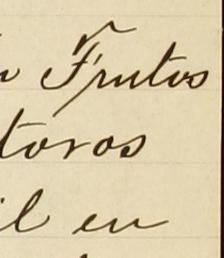 Frutos
toros
il en